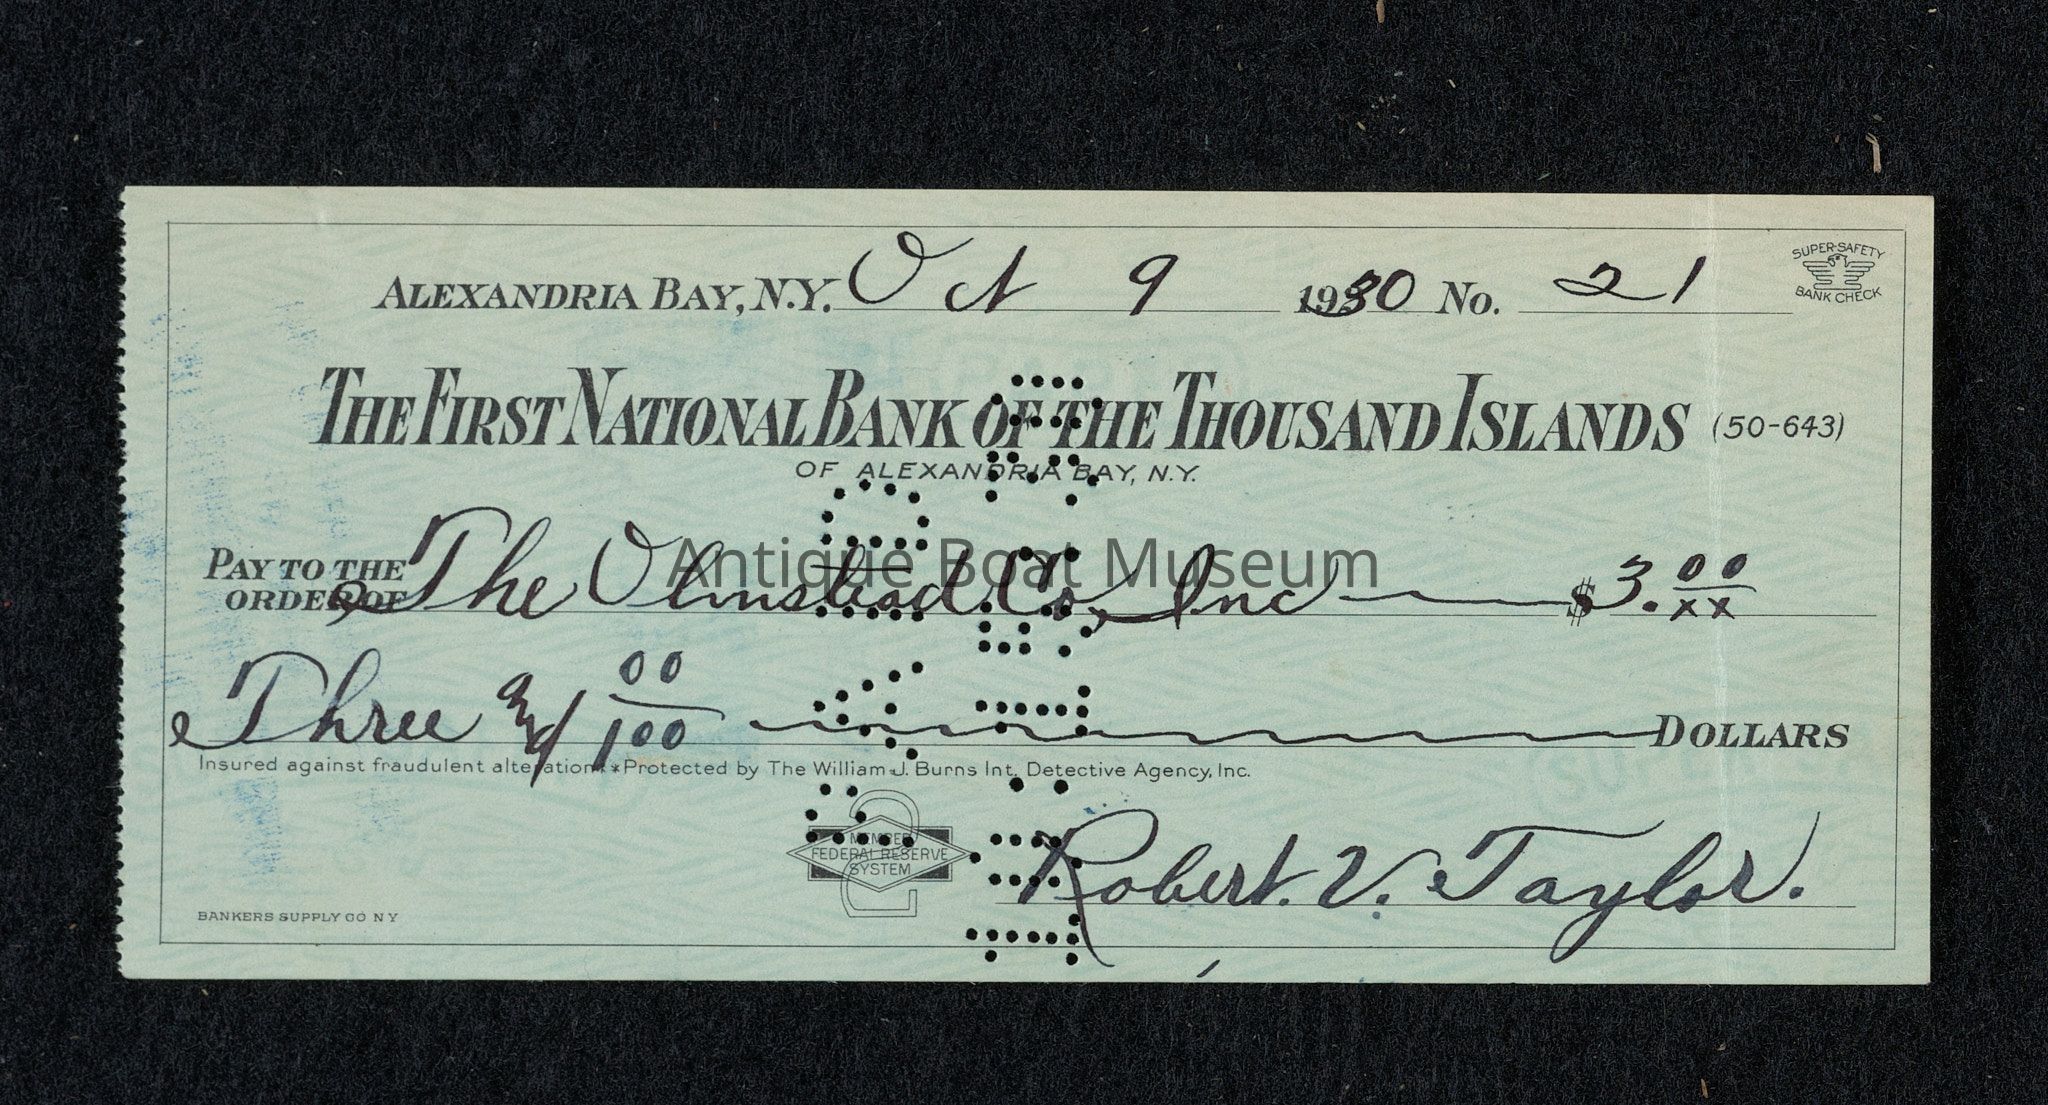 ALEXANDRIA BAY, N.Y. Oct 9 1930 No. 21
SUPER-SAFETY
BANK CHECK
THE FIRST NATIONAL BANK OF THE THOUSAND ISLANDS (50-643)
OF ALEXANDRIA BAY, N.Y.
PAY TO THE
ORDER OF The Olmstead Co, Inc $3.00/xx
Antique Boat Museum
Three and 00/100 DOLLARS
Insured against fraudulent alteration. *Protected by The William J. Burns Int. Detective Agency, Inc.
MEMBER
FEDERAL RESERVE
SYSTEM
Robert. V. Taylor.
BANKERS SUPPLY CO N Y